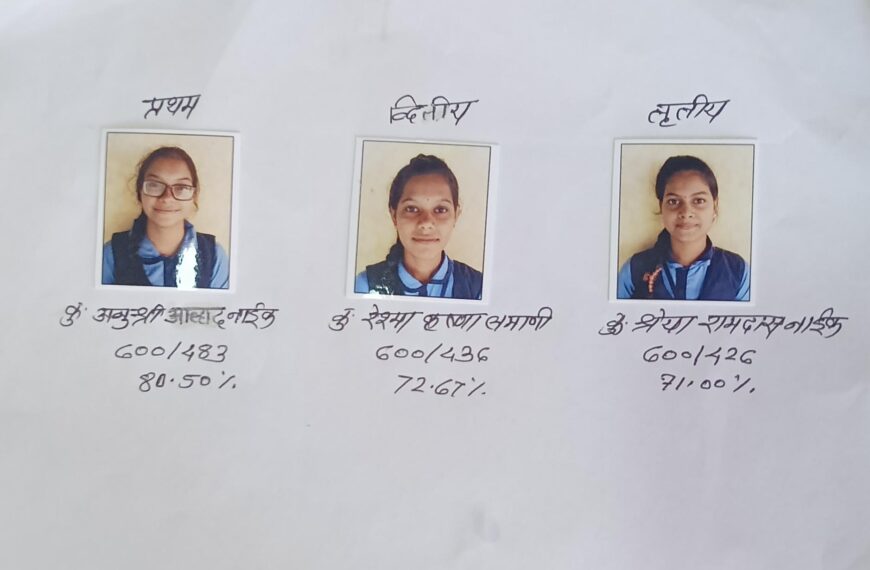 प्रथम
द्वितीय
तृतीय
कु. अनुश्री आल्हाद नाईक
600/483
80.50%
कु. रेश्मा कृष्णा लमाणी
600/436
72.67%
कु. श्रेया रामदास नाईक
600/426
71.00%